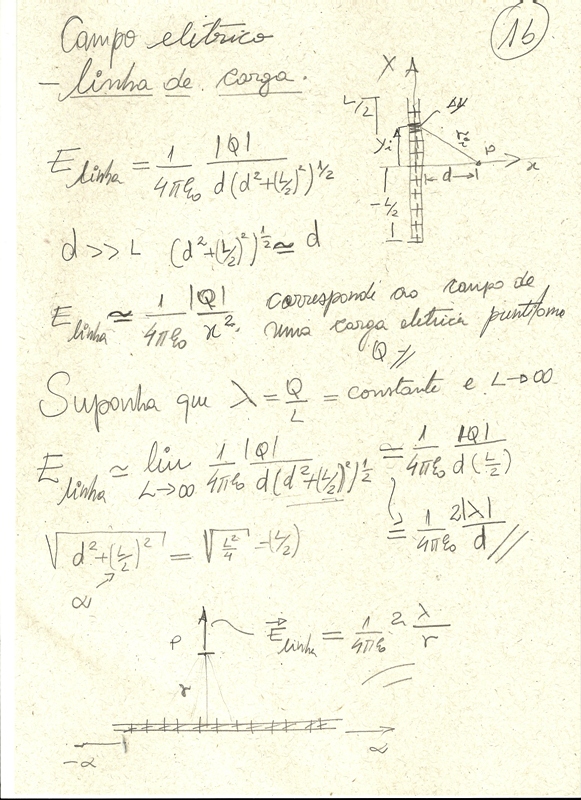 16
Campo elitrico
- linha de carga.
E linha = 1/4πε₀ |Q|/d(d²+(L/2)²)^1/2
X A
L/2
ΔY
yi
ri
P
x
d
-L/2
d >> L (d²+(L/2)²)^1/2 ≃ d
E linha ≃ 1/4πε₀ |Q|/x². corresponde ao campo de
uma carga eletrica puntiforme
Q //
Suponha que λ = Q/L = constante e L→∞
E linha ≃ lim L→∞ 1/4πε₀ |Q|/d(d²+(L/2)²)^1/2 ≃ 1/4πε₀ |Q|/d(L/2)
= 1/4πε₀ 2|λ|/d //
√d²+(L/2)² = √L²/4 = (L/2)
α
P
E⃗ linha = 1/4πε₀ 2 λ/r
r
-α
α